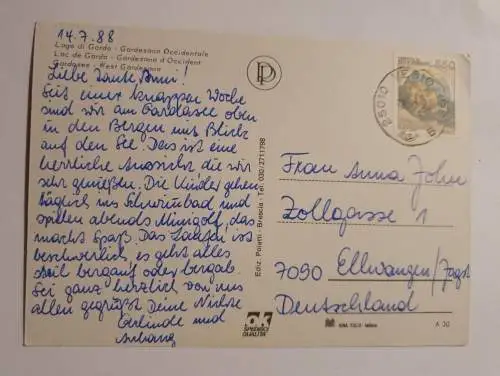 14.7.88
Lago di Garda - Gardesana Occidentale
Lac de Garda - Gardesana d'Occident
Gardasee - West Gardesana
Liebe Tante Anni!
Seit einer knappen Woche
sind wir am Gardasee oben
in den Bergen mit Blick
auf den See. Das ist eine
herrliche Aussicht die wir
sehr genießen. Die Kinder gehen
täglich ins Schwimmbad und
spielen abends Minigolf, das
macht Spaß. Das Laufen ist
beschwerlich, es geht alles
steil bergauf oder bergab.
Sei ganz herzlich von uns
allen gegrüßt Deine Nichte
Gerlinde und
Anhang
Ediz. Poiatti - Brescia - Tel. 030/2711798
OK
QUALITA'
650
25010
BS
Frau Anna John
Zollgasse 1
7090 Ellwangen/Jagst
Deutschland
A 30